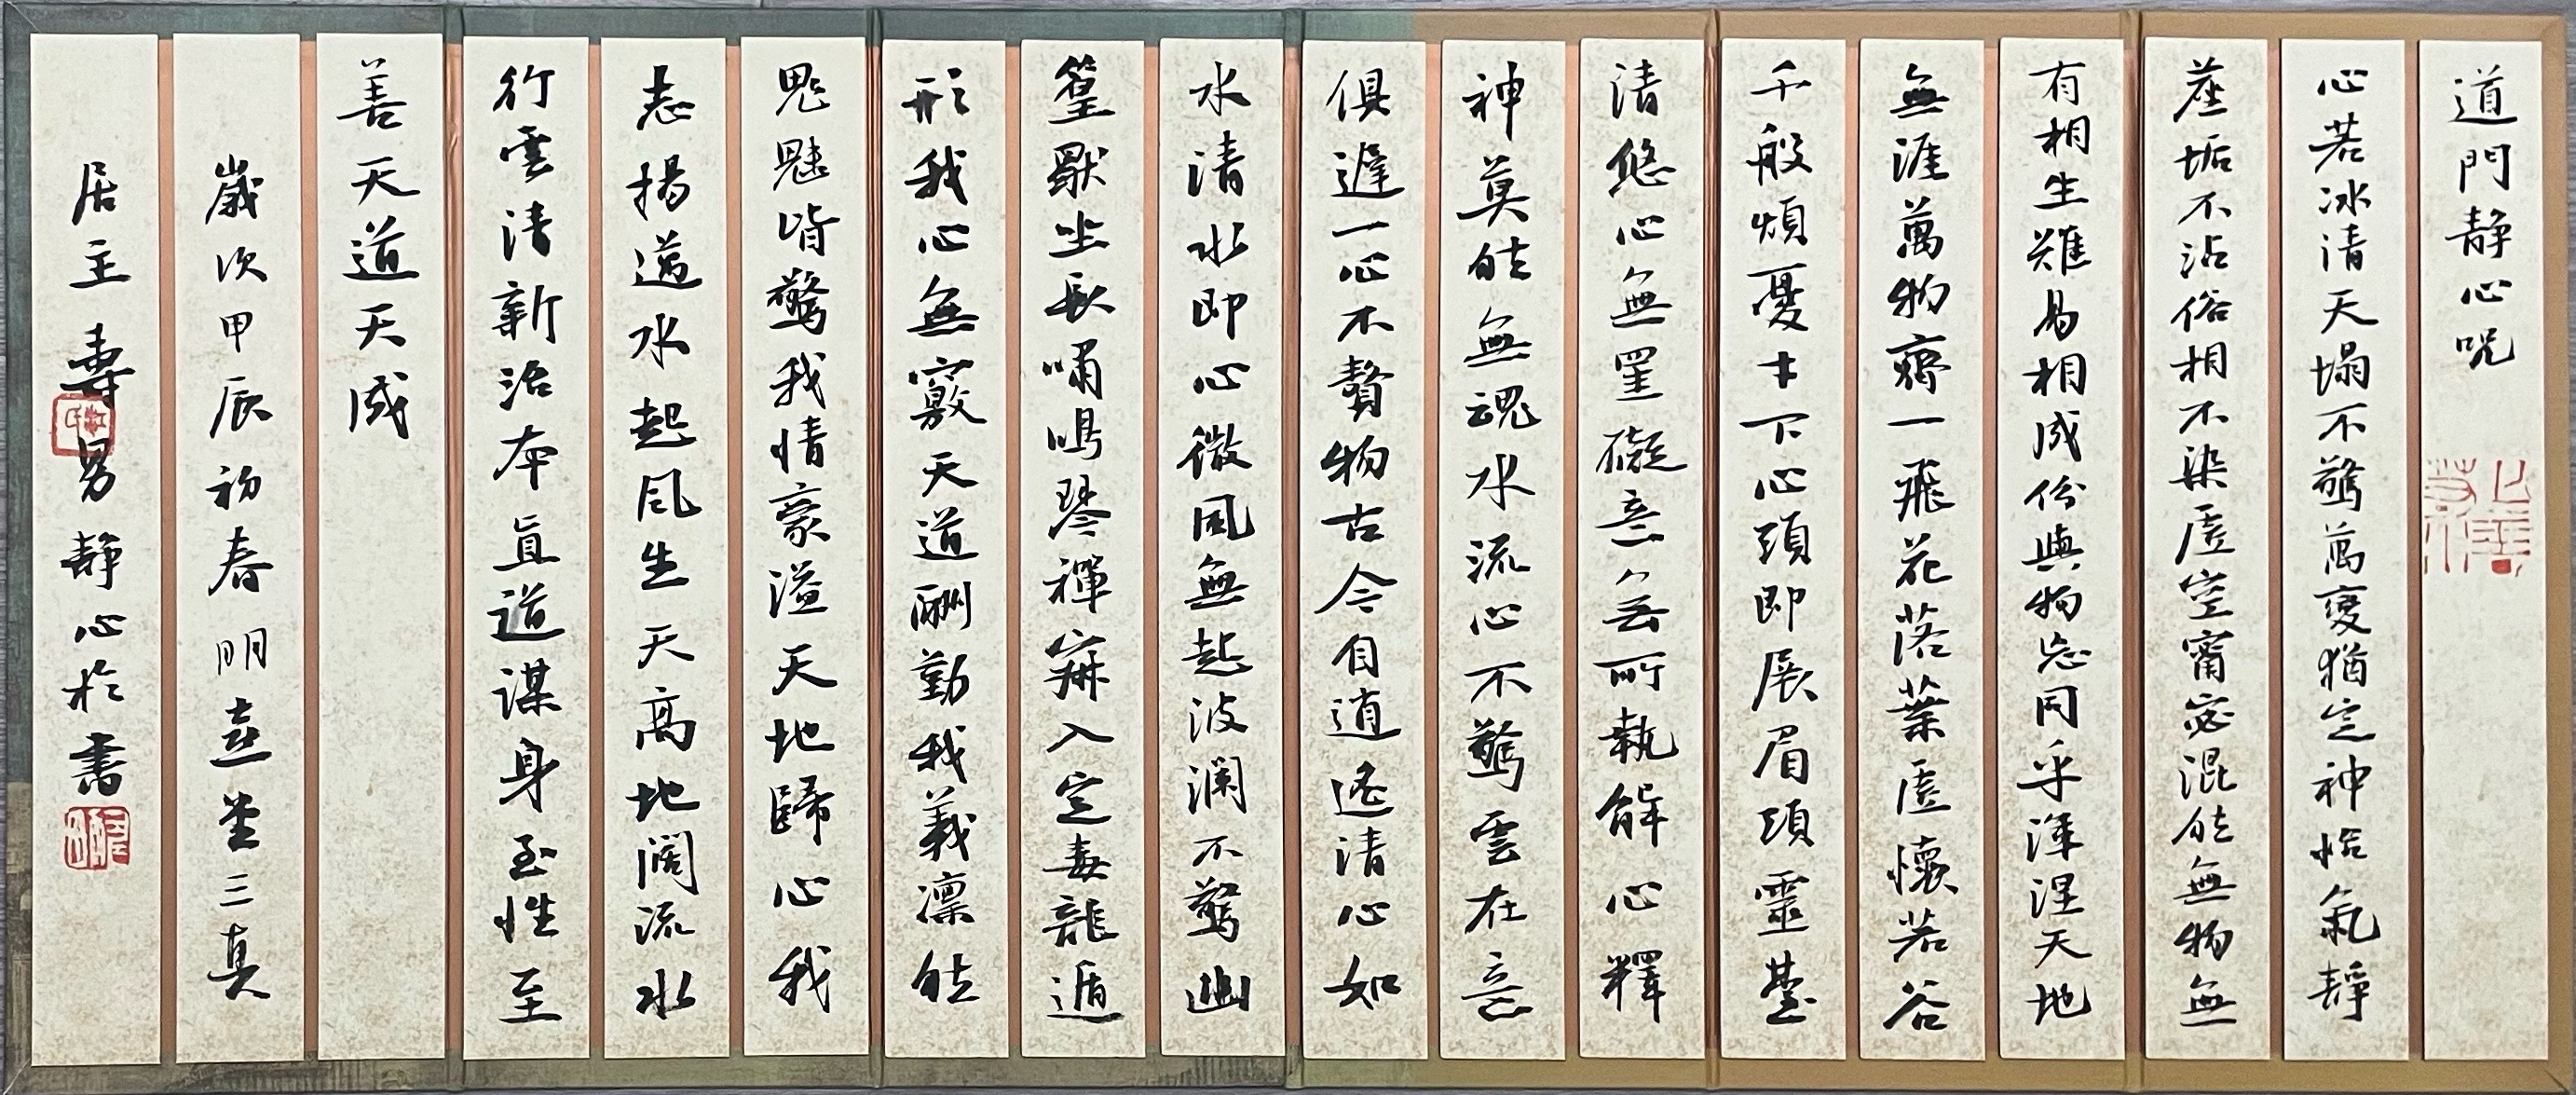 道門靜心咒
心若冰清天塌不驚萬變猶定神怡氣靜
塵垢不沾俗相不染虛空甯宓混然無物無
有相生難易相成份與物忘同乎渾涅天地
無涯萬物齊一飛花落葉虛懷若谷
千般煩憂才下心頭即展眉頭靈臺
清悠心無罣礙意無所執解心釋
神莫然無魂水流心不驚雲在意
俱遲一心不贅物古今自逍遙清心如
水清水即心微風無起波瀾不驚幽
篁獸坐長嘯鳴琴禪寂入定毒龍遁
形我心無竅天道酬勤我義凜然
鬼魅皆驚我情豪溢天地歸心我
志揚邁水起風生天高地闊流水
行雲清新治本直道謀身至性至
善天道天成
歲次甲辰初春明堂三真
居主壽男靜心於書